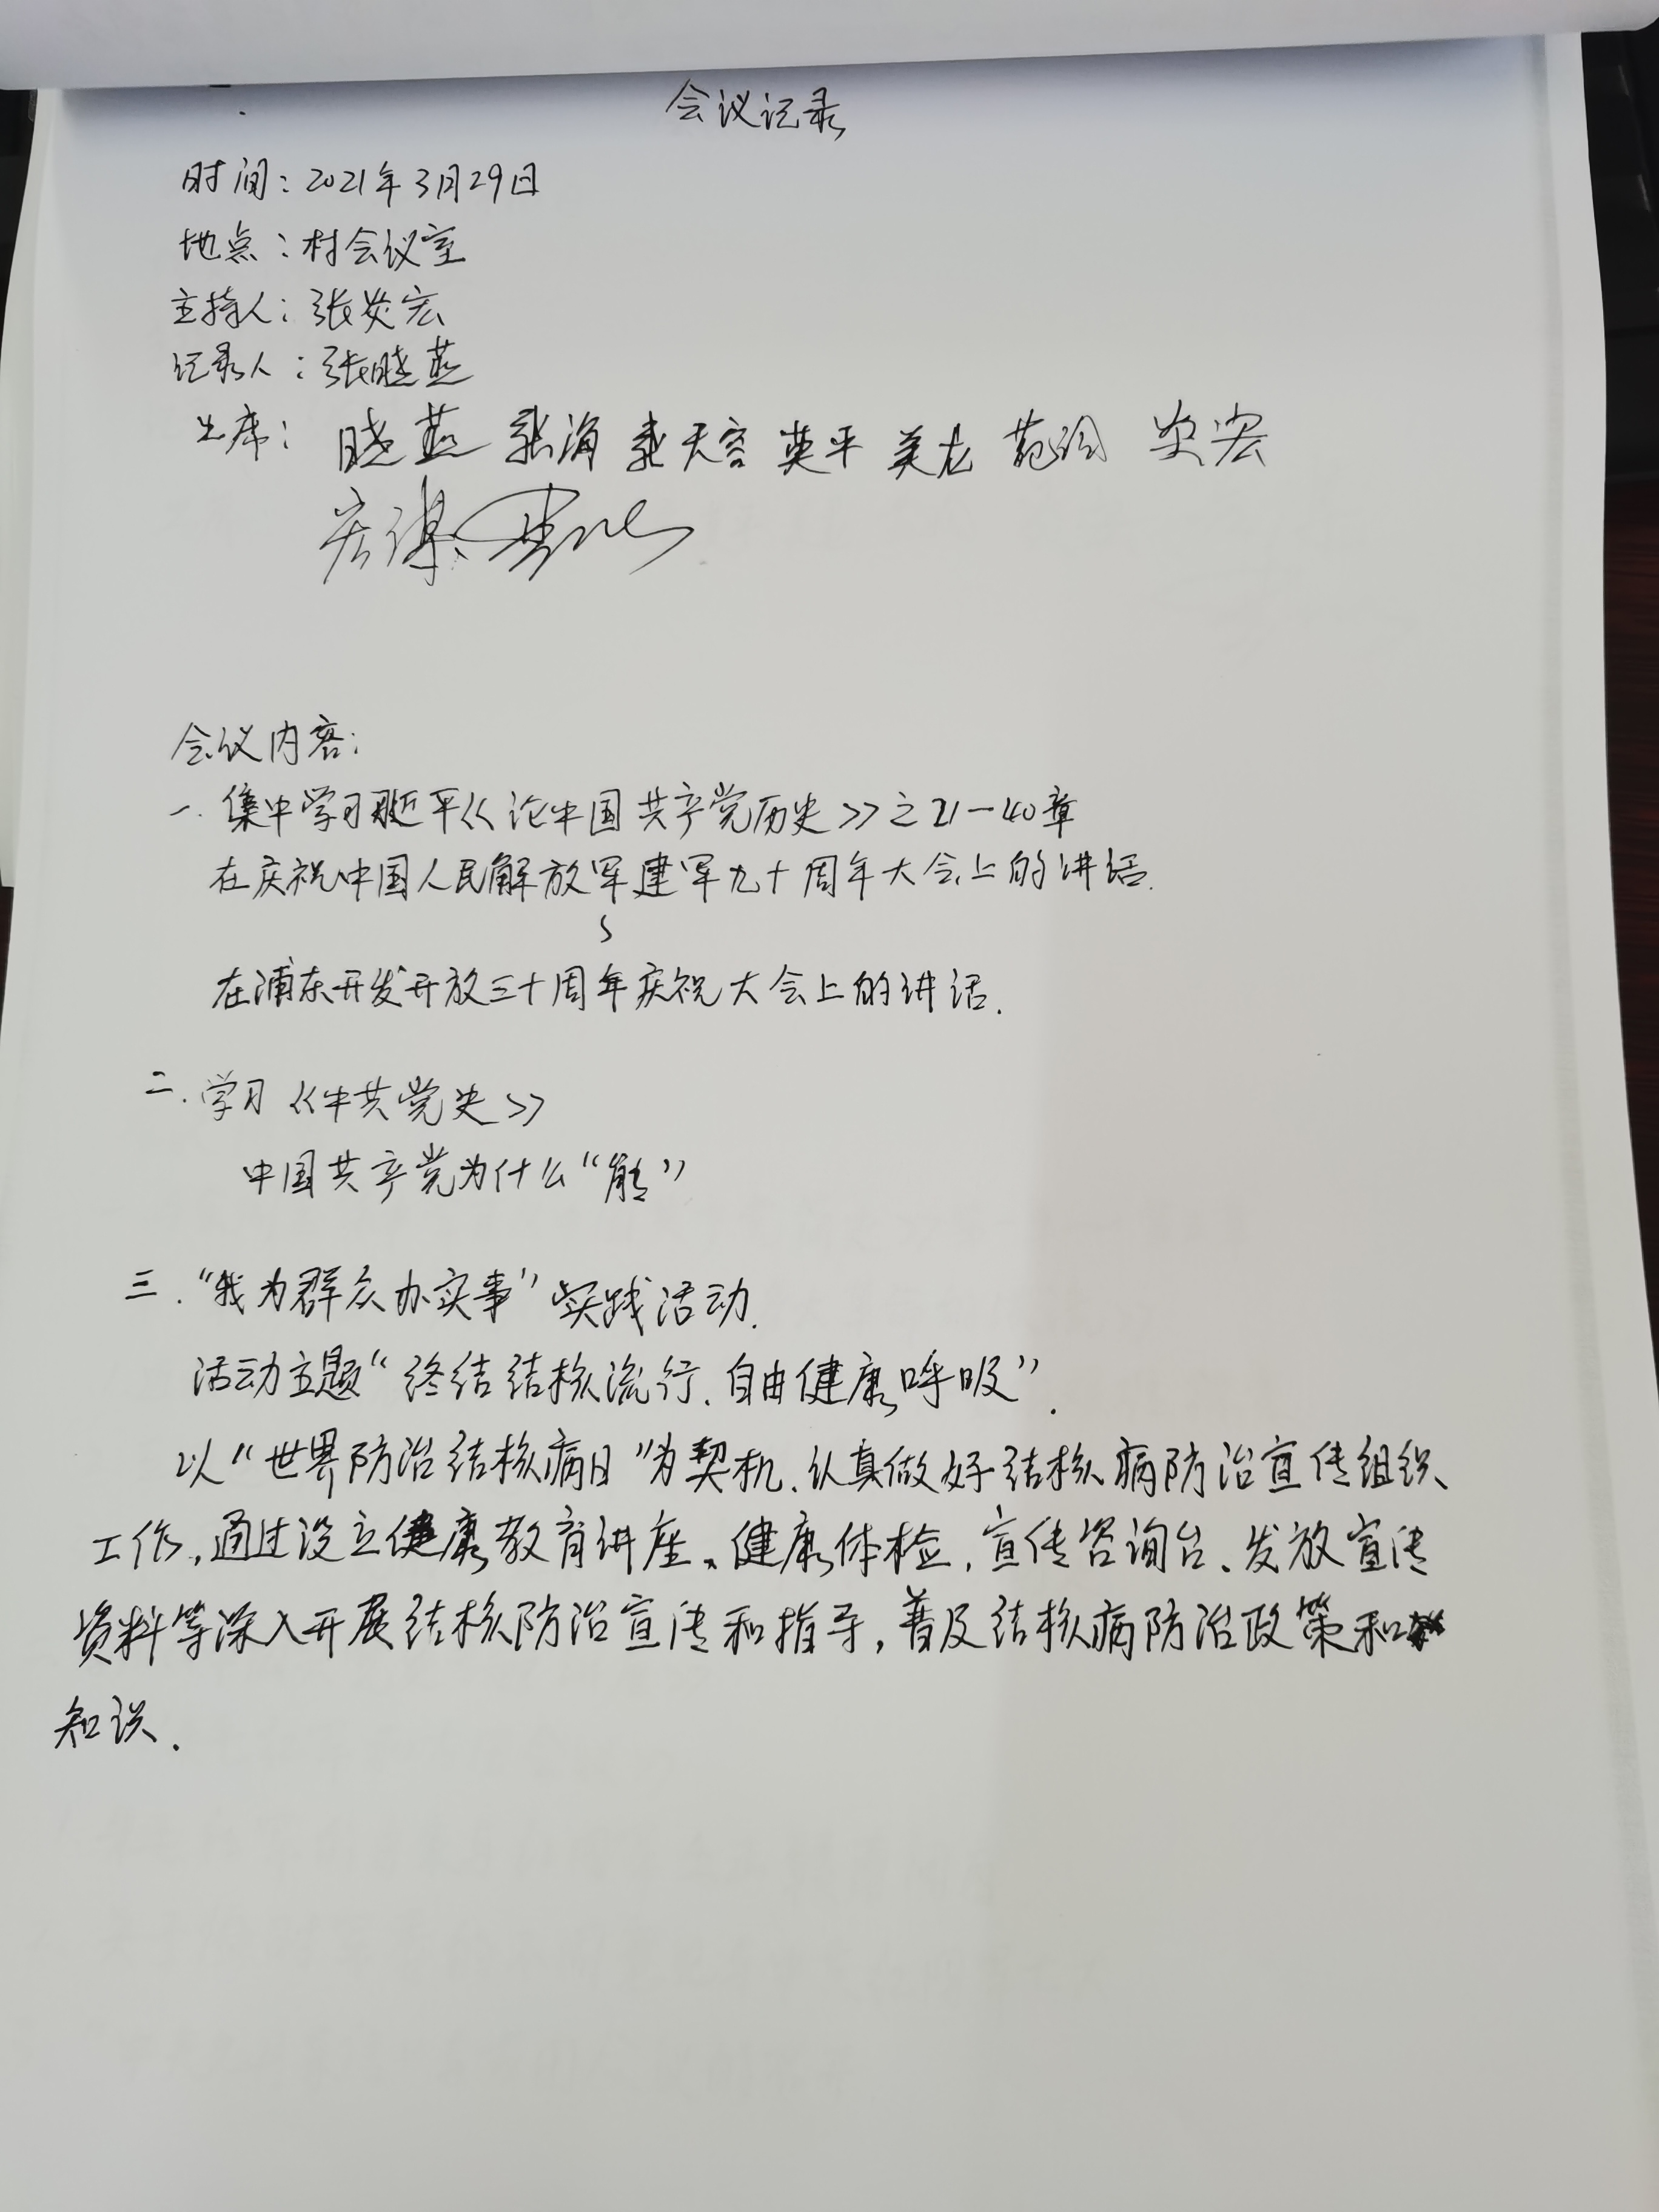 会议记录
时间：2021年3月29日
地点：村会议室
主持人：张炎宏
记录人：张晓燕
出席：晓燕 张海 天容 英平 美龙 炎宏
会议内容：
一.集中学习习近平《论中国共产党历史》之21—40章
在庆祝中国人民解放军建军九十周年大会上的讲话.
在浦东开发开放三十周年庆祝大会上的讲话.
二.学习《中共党史》
中国共产党为什么“能”
三.“我为群众办实事”实践活动.
活动主题“终结结核流行.自由健康呼吸”.
以“世界防治结核病日”为契机.认真做好结核病防治宣传组织
工作,通过设立健康教育讲座、健康体检,宣传咨询台、发放宣传
资料等深入开展结核防治宣传和指导,普及结核病防治政策和
知识.